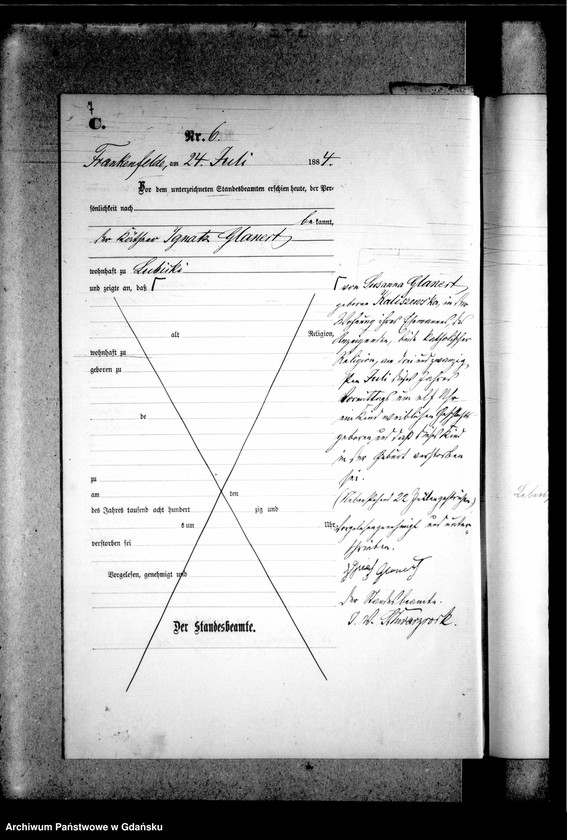 7
C.
Nr. 6.
Frankenfelde, am 24. Juli 1884.
Vor dem unterzeichneten Standesbeamten erschien heute, der Per-
sönlichkeit nach
bekannt,
der Käthner Ignatz Glanert
wohnhaft zu Lubicki
und zeigte an, daß Γ
alt Religion,
wohnhaft zu
geboren zu
de
zu
am ten
des Jahres tausend acht hundert zig und
s um Uhr
verstorben sei
Vorgelesen, genehmigt und
Der Standesbeamte.
Γ von Susanna Glanert
geborene Kaliszewska, in der
Wohnung ihres Ehemannes des
Anzeigenden, beide katholischer
Religion, am drei und zwanzig-
sten Juli dieses Jahres
Vormittags um elf Uhr
ein Kind weiblichen Geschlechts
geboren und daß dieses Kind
in der Geburt verstorben
sei.
(Nebenstehend 22 Zeilen gestrichen)
Vorgelesen genehmigt und unter-
schrieben.
Glanert
Der Standesbeamte.
J. V.
Archiwum Państwowe w Gdańsku